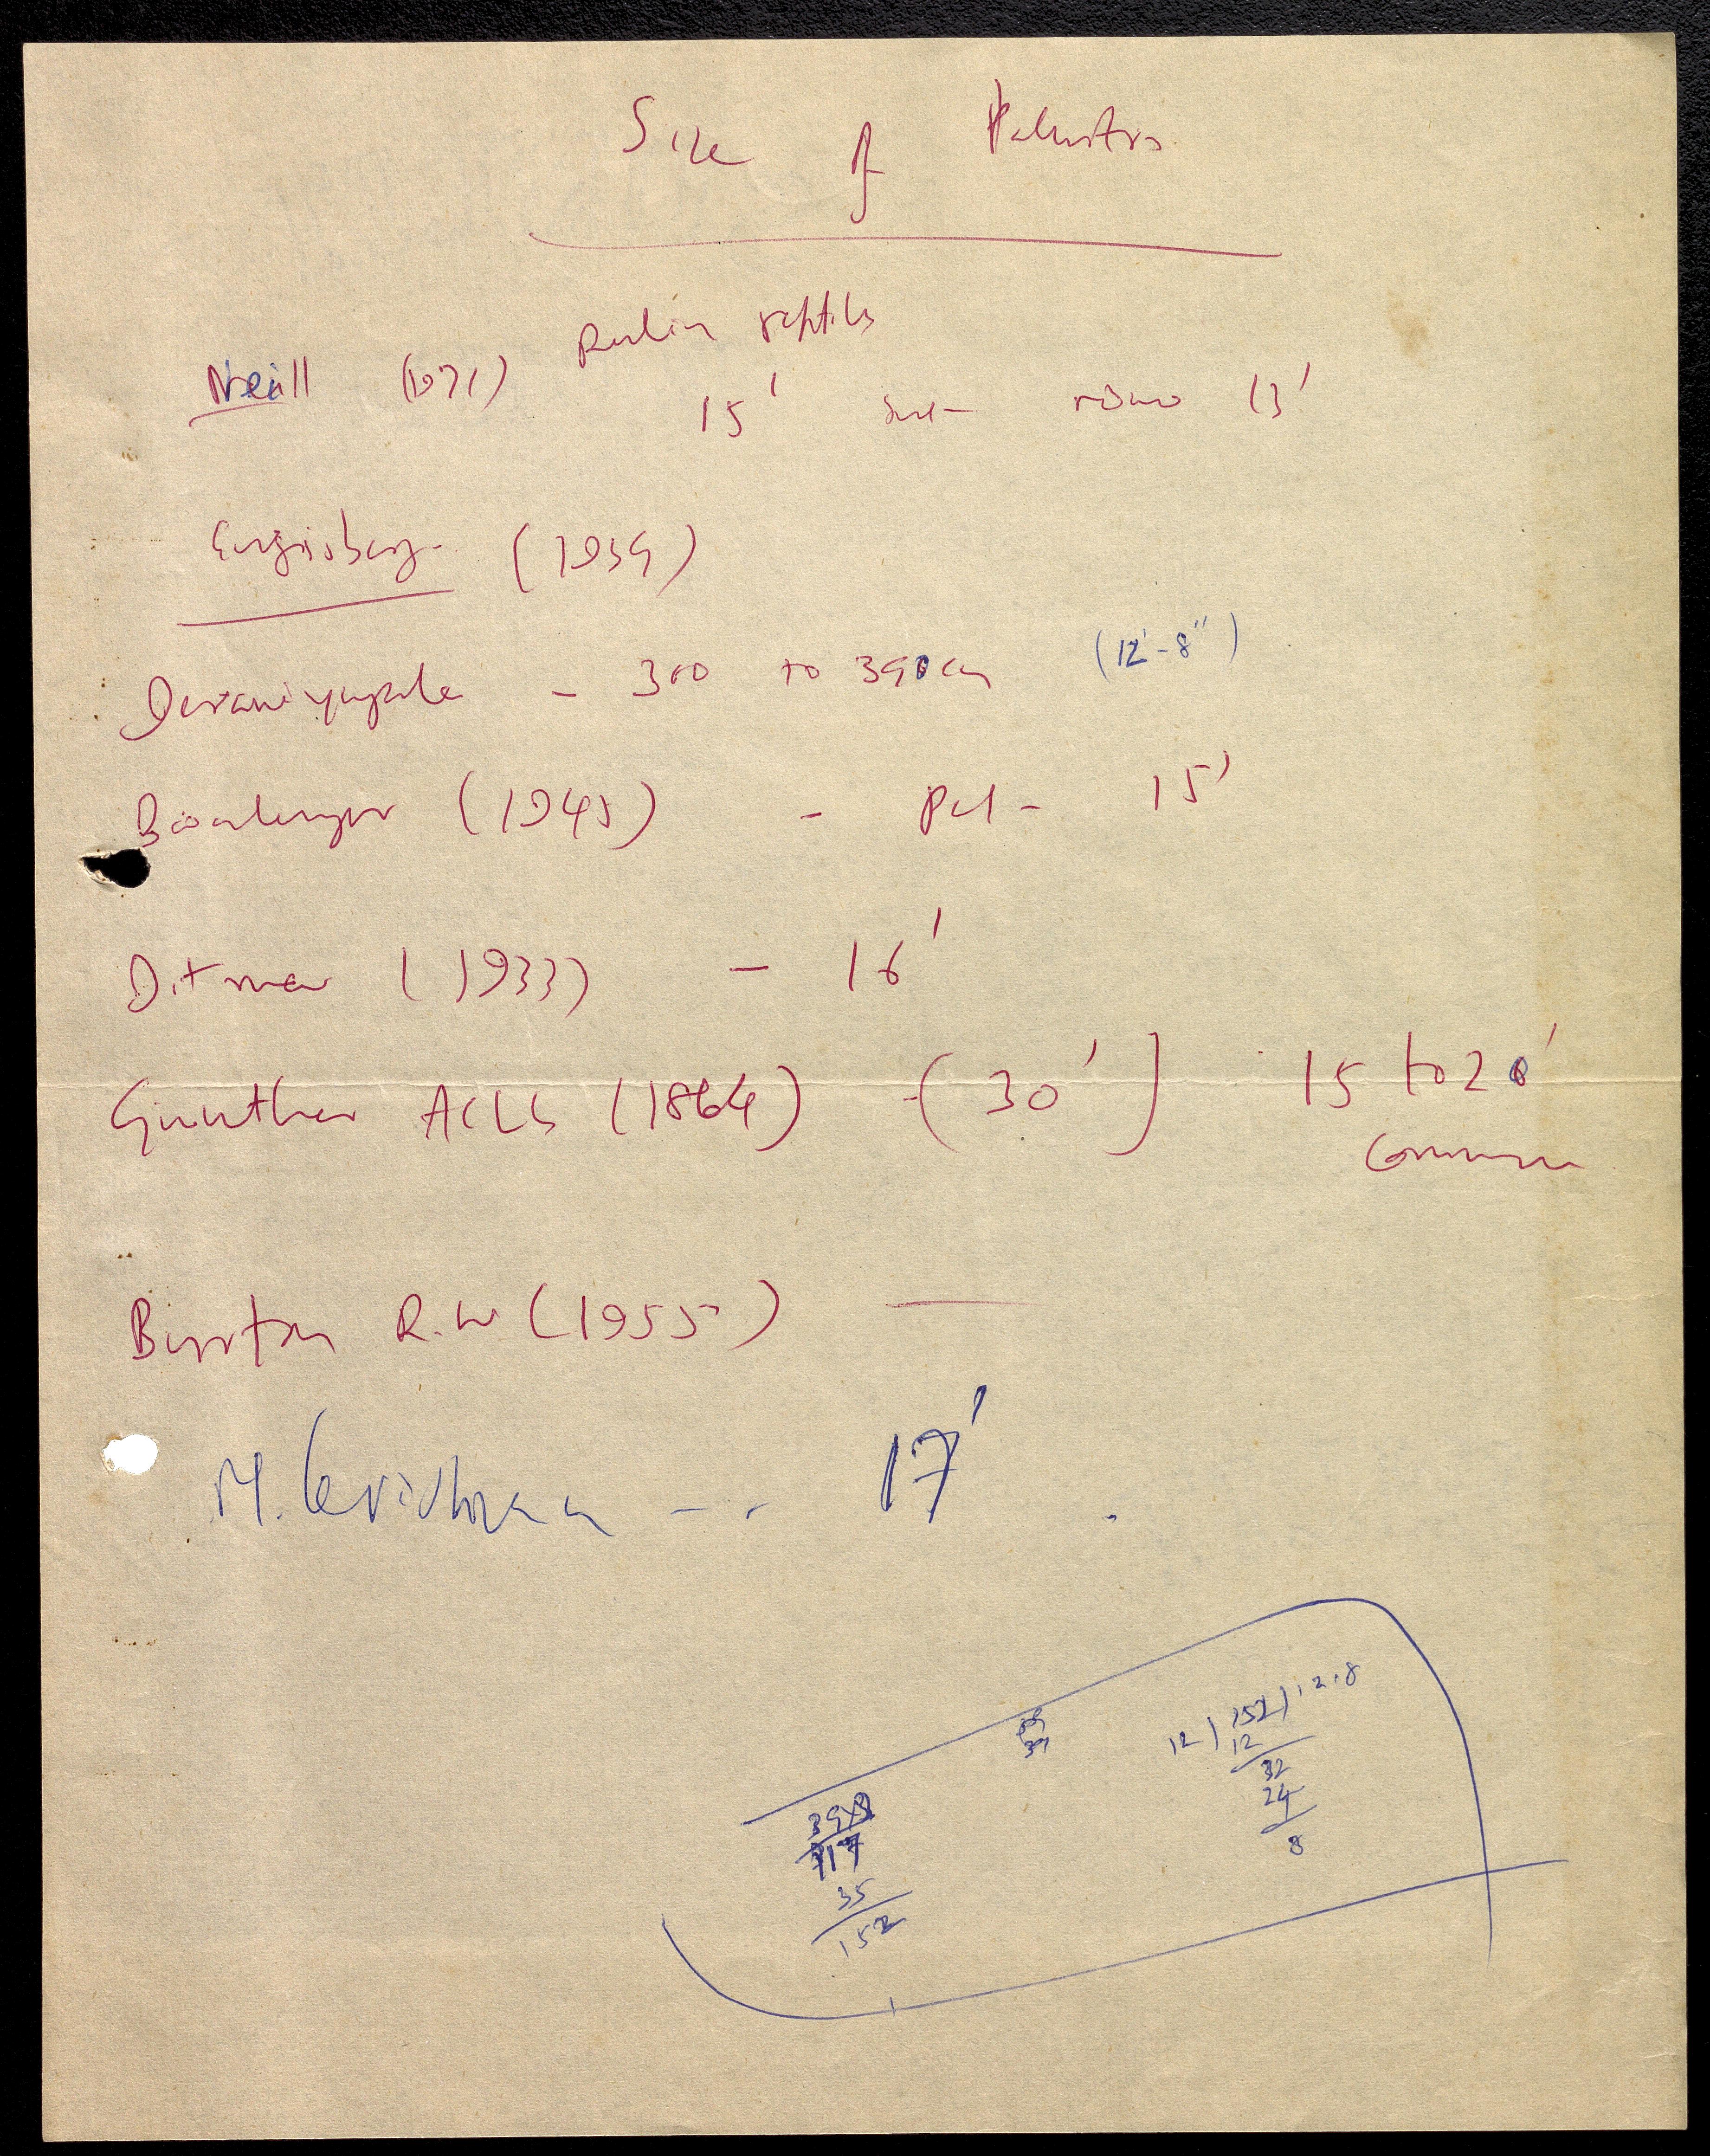 Size of Palustris
Ruling reptiles
Neill (1971) 15' but now 13'
(1939)
Deraniyagala - 300 to 390 cm (12'-8")
Boulenger (1945) - Pal - 15'
Ditmar (1933) - 16'
Gunther ACLG (1864) - (30') 15 to 20'
common
Burton R.W (1955) —
M. Krishnan - - 17'
12 ) 152 ) 12.8
12
32
24
8
117
35
152